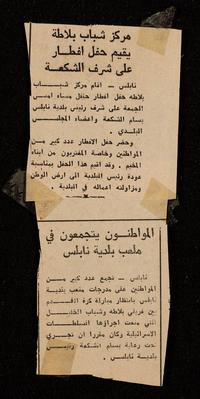 مركز شباب بلاطة
يقيم حفل افطار
على شرف الشكعة
نابلس — اقام مركز شباب
بلاطه حفل افطار حفل مساء امس
الجمعة على شرف رئيس بلدية نابلس
بسام الشكعة واعضاء المجلس
البلدي .
وحضر حفل الافطار عدد كبير من
المواطنين وخاصة المغتربون من ابناء
المخيم . وقد اقيم هذا الحفل بمناسبة
عودة رئيس البلدية الى ارض الوطن
ومزاولته اعماله في البلدية .
المواطنون يتجمعون في
ملعب بلدية نابلس
نابلس — تجمع عدد كبير من
المواطنين على مدرجات ملعب بلدية
نابلس بانتظار مباراة كرة القدم
بين فريقي بلاطه وشباب الخليل
التي منعت اجراؤها السلطات
الاسرائيلية وكان مقررا ان تجري
تحت رعاية بسام الشكعة رئيس
بلدية نابلس .